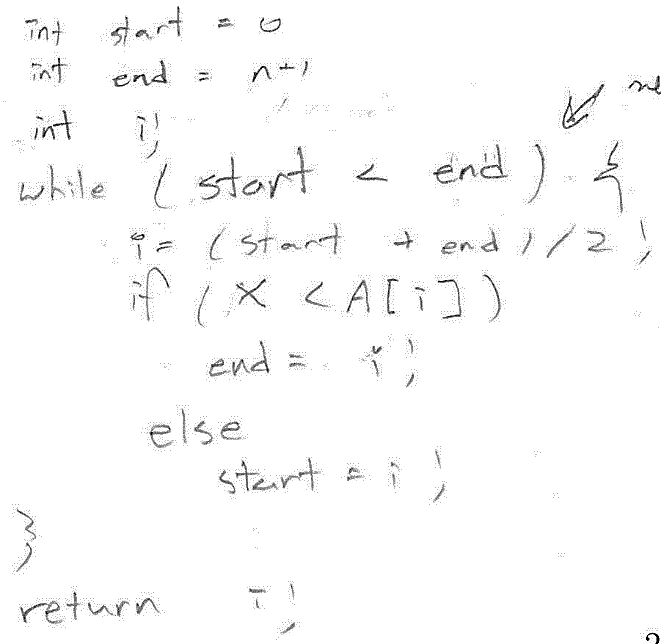 int start = 0
int end = n-1
int i;
while (start < end) {
i = (start + end) / 2;
if (X < A[i])
end = i;
else
start = i;
}
return i;